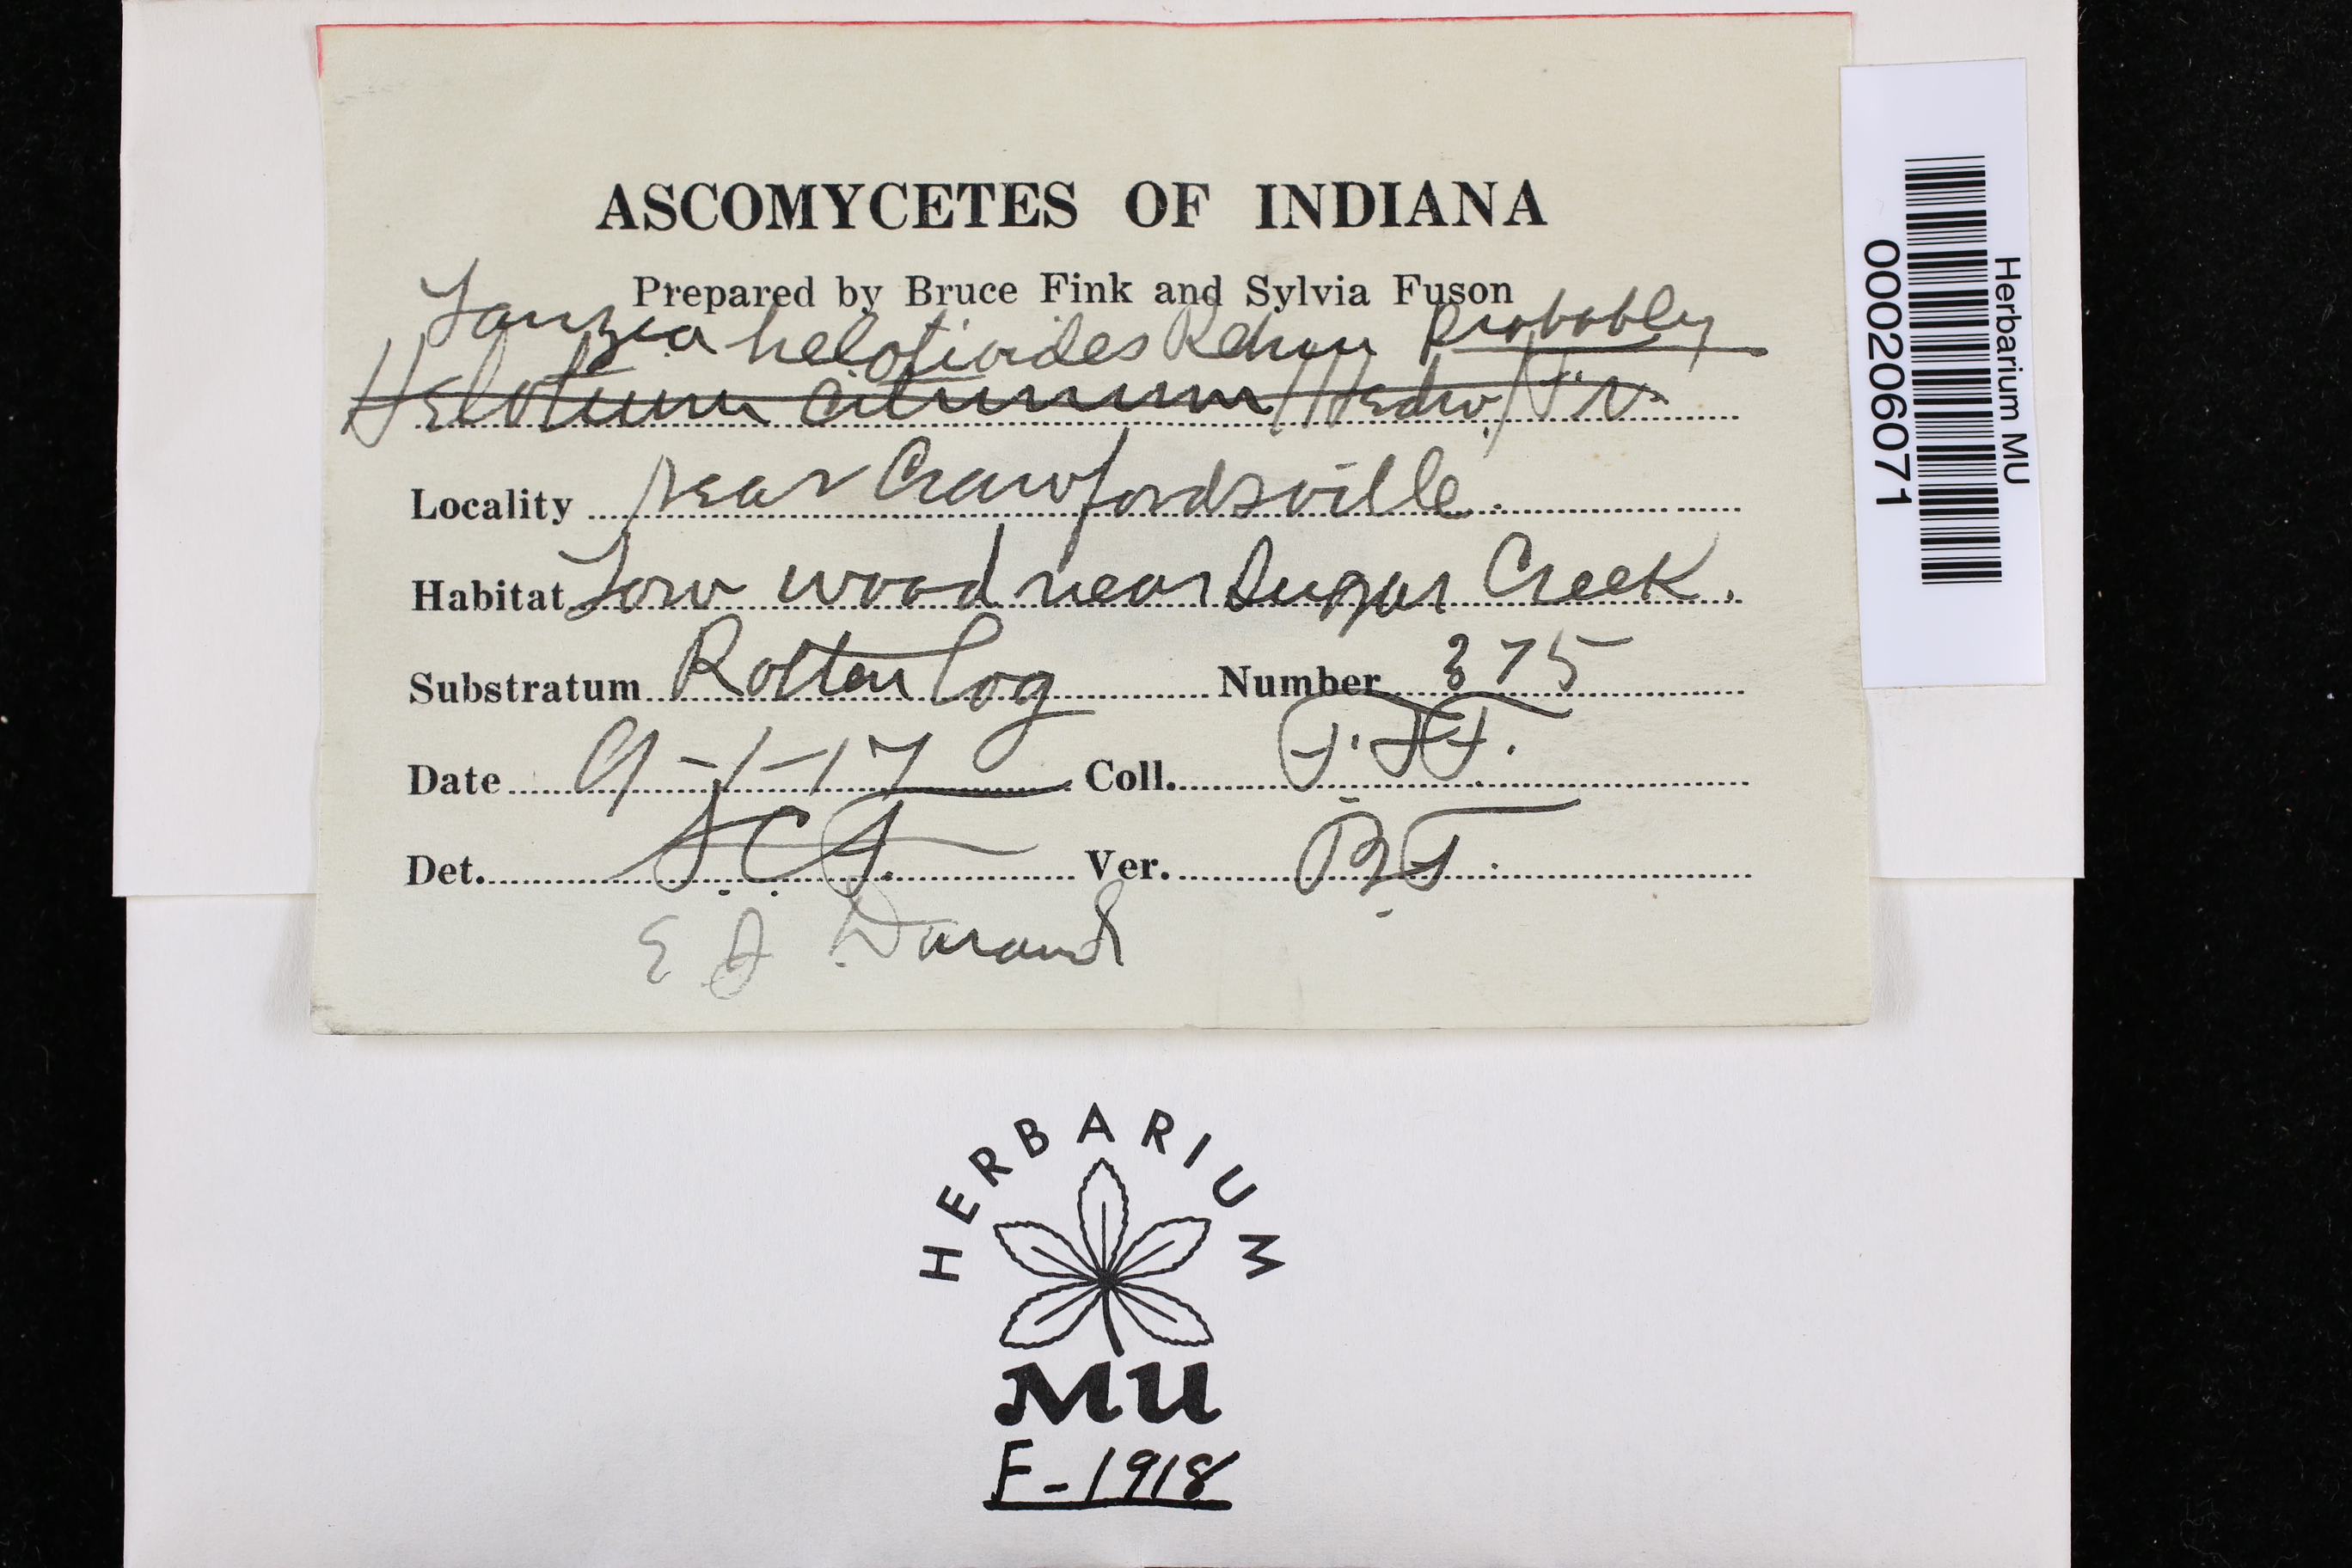 ASCOMYCETES OF INDIANA
Prepared by Bruce Fink and Sylvia Fuson
Lanzia helotioides Rehm Probably
Helotium citrinum (Hedw.) Fr.
Locality near Crawfordsville.
Habitat Low wood near Sugar Creek.
Substratum Rotten log Number 375
Date 9-1-17 Coll.
Det. Ver. B F.
E J Durand
Herbarium MU
000206071
HERBARIUM
MU
F-1918